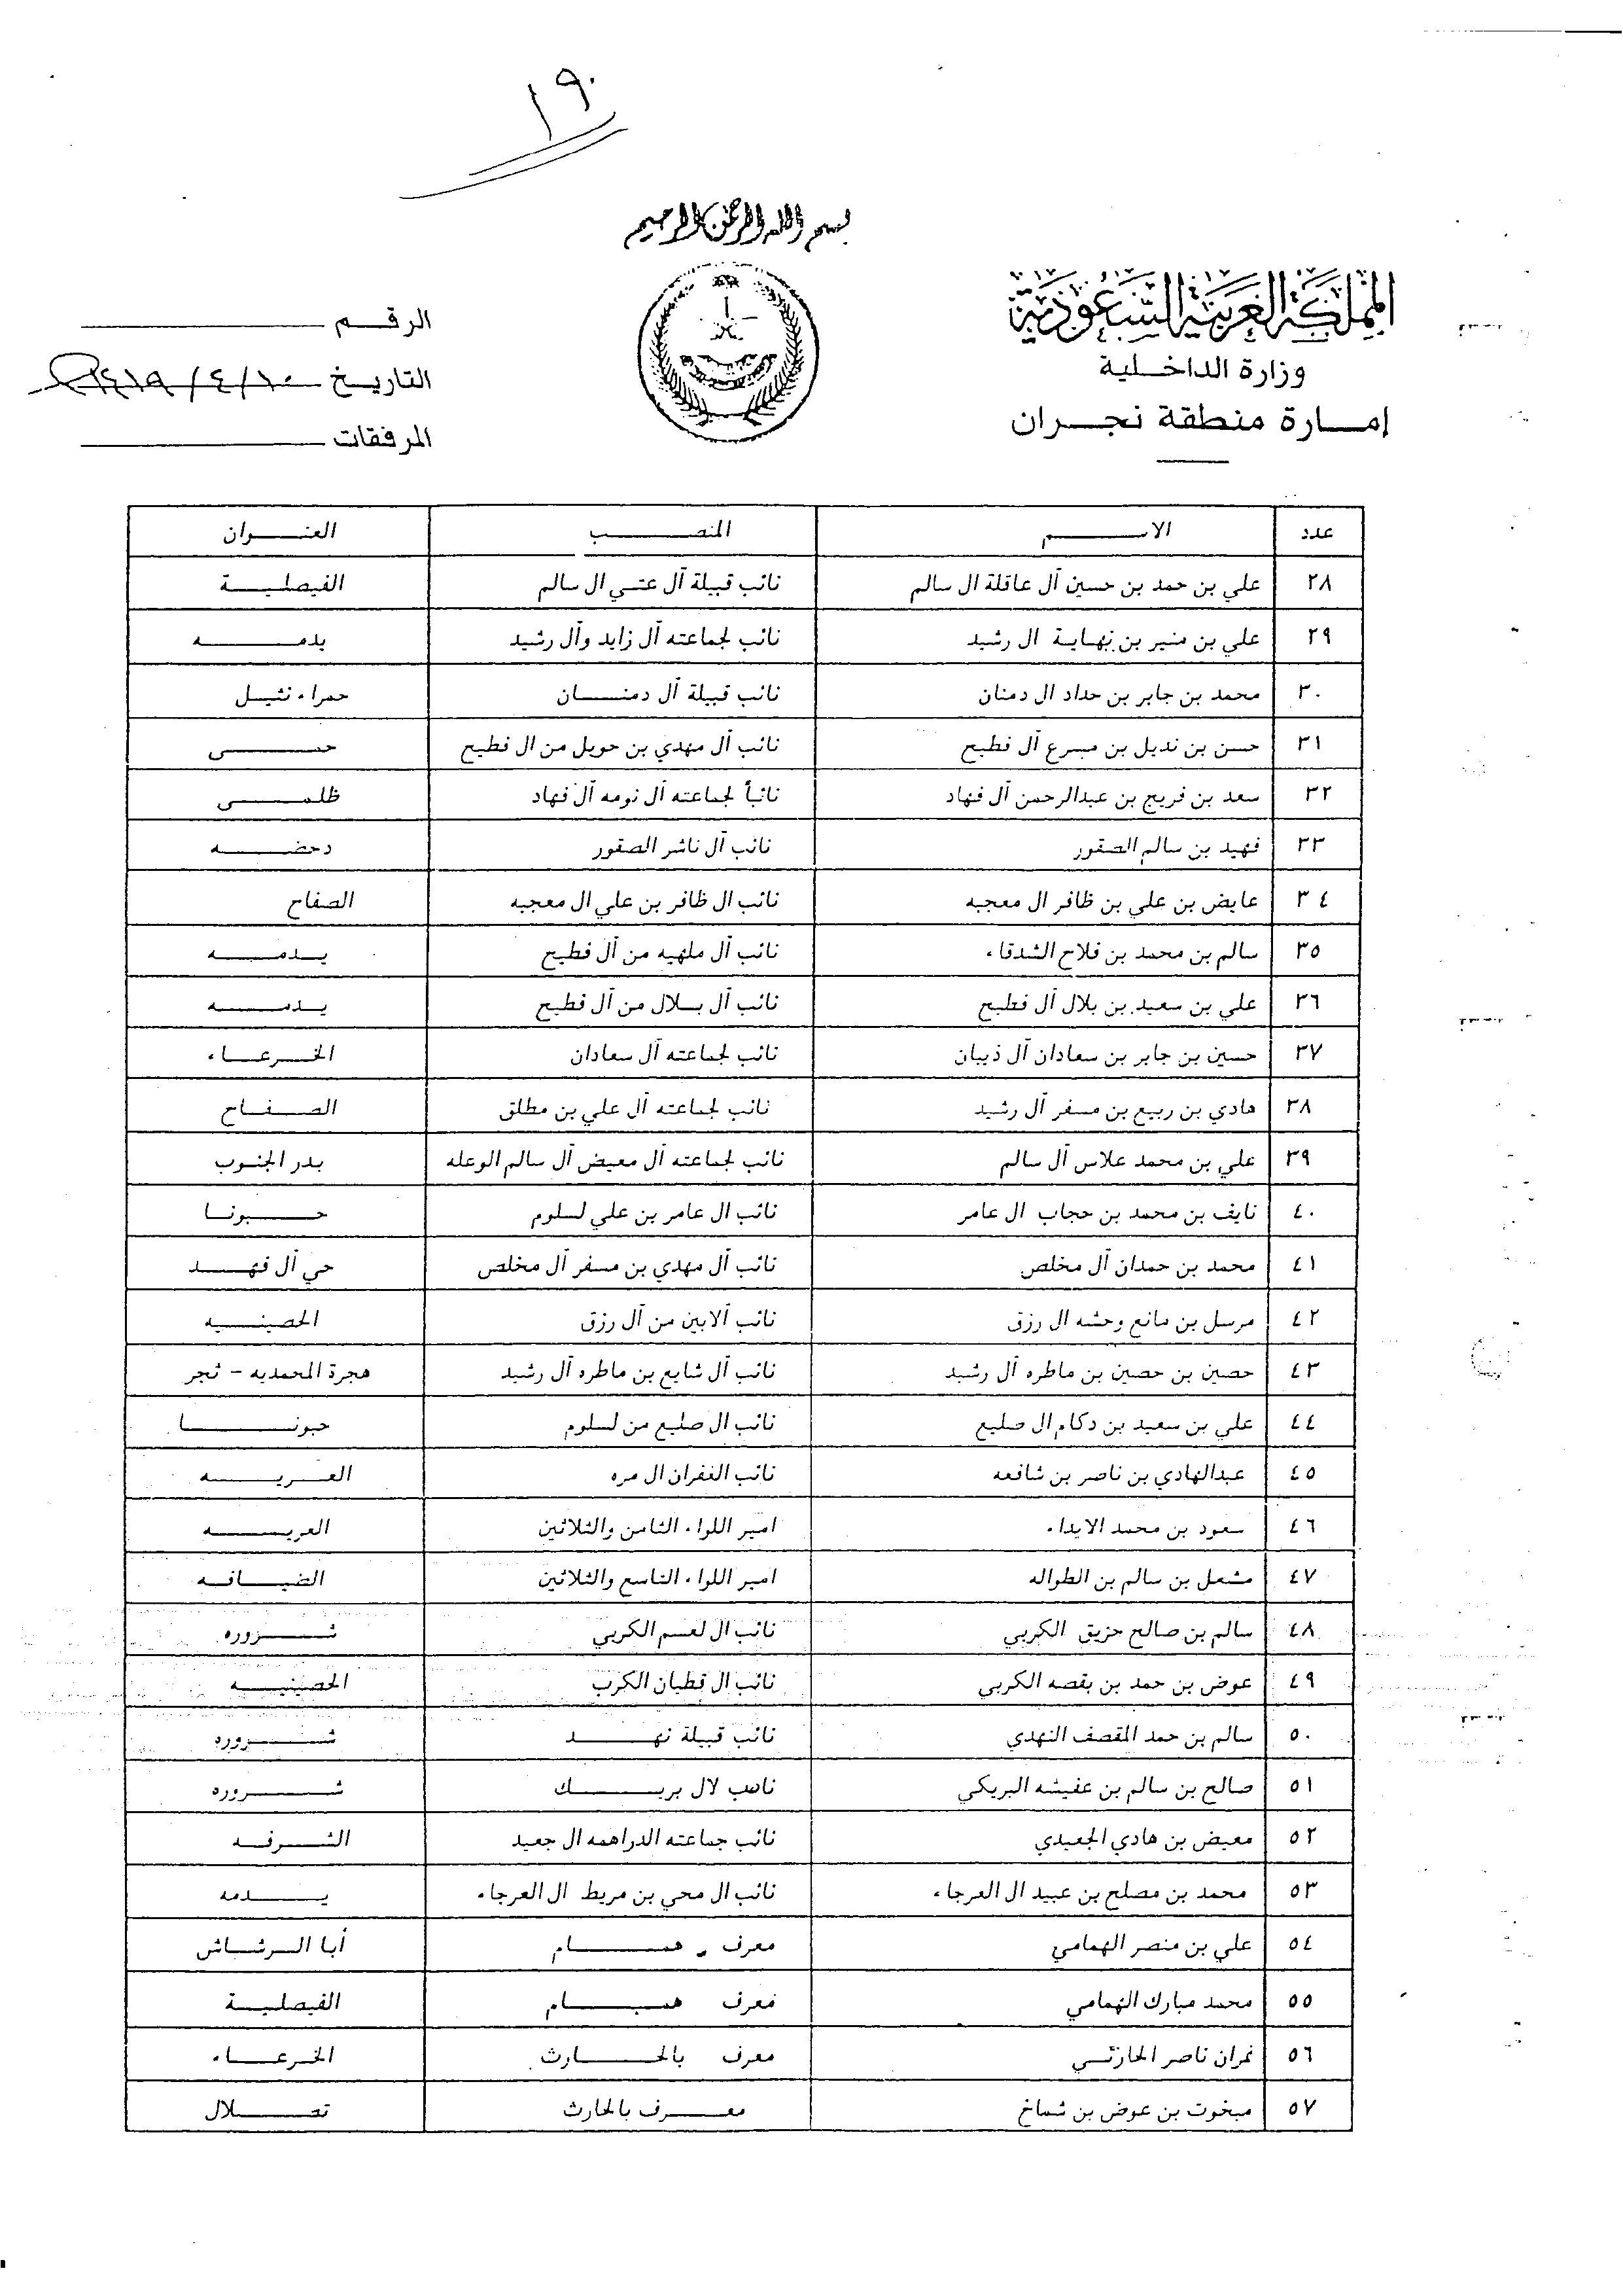 ١٩٠
بسم الله الرحمن الرحيم
المملكة العربية السعودية
وزارة الداخلية
إمارة منطقة نجران
الرقم
التاريخ ١٤١٩/٤/١٠
المرفقات
عدد الاسم المنصب العنوان
٢٨ علي بن حمد بن حسين آل عاقلة ال سالم نائب قبيلة آل عتي ال سالم الفيصلية
٢٩ علي بن منير بن نهاية ال رشيد نائب لجماعته آل زايد وآل رشيد يدمه
٣٠ محمد بن جابر بن حداد ال دمنان نائب قبيلة آل دمنان حمراء نثيل
٣١ حسن بن نديل بن مسرع آل فطيح نائب آل مهدي بن حويل من ال فطيح حمى
٣٢ سعد بن فريج بن عبدالرحمن آل فهاد نائباً لجماعته آل نومه آل فهاد ظلمى
٣٣ فهيد بن سالم الصقور نائب آل ناشر الصقور دحضه
٣٤ عايض بن علي بن ظافر ال معجبه نائب ال ظافر بن علي ال معجبه الصفاح
٣٥ سالم بن محمد بن فلاح الشدقاء نائب آل ملهيه من آل فطيح يدمه
٣٦ علي بن سعيد بن بلال آل فطيح نائب آل بلال من آل فطيح يدمه
٣٧ حسين بن جابر بن سعادان آل ذيبان نائب لجماعته آل سعادان الخرعاء
٣٨ هادي بن ربيع بن مسفر آل رشيد نائب لجماعته آل علي بن مطلق الصفاح
٣٩ علي بن محمد علاس آل سالم نائب لجماعته آل معيض آل سالم الوعله بدر الجنوب
٤٠ نايف بن محمد بن حجاب ال عامر نائب ال عامر بن علي لسلوم حبونا
٤١ محمد بن حمدان آل مخلص نائب آل مهدي بن مسفر آل مخلص حي آل فهد
٤٢ مرسل بن مانع وحشه ال رزق نائب آلابين من آل رزق الحصينيه
٤٣ حصين بن حصين بن ماطره آل رشيد نائب آل شايع بن ماطره آل رشيد هجرة المحمديه - ثجر
٤٤ علي بن سعيد بن دكام ال صليع نائب ال صليع من لسلوم حبونا
٤٥ عبدالهادي بن ناصر بن شافعه نائب الغفران ال مره العريسه
٤٦ سعود بن محمد الايداء امير اللواء الثامن والثلاثين العريسه
٤٧ مشعل بن سالم بن الطواله امير اللواء التاسع والثلاثين الضيافه
٤٨ سالم بن صالح حزيق الكربي نائب ال لعسم الكربي شروره
٤٩ عوض بن حمد بن بقصه الكربي نائب ال قطيان الكرب الحصينيه
٥٠ سالم بن حمد المقصف النهدي نائب قبيلة نهد شروره
٥١ صالح بن سالم بن عفيشه البريكي نائب لال بريك شروره
٥٢ معيض بن هادي الجعيدي نائب جماعته الدراهمه ال جعيد الشرفه
٥٣ محمد بن مصلح بن عبيد ال العرجاء نائب ال محي بن مريط ال العرجاء يدمه
٥٤ علي بن منصر الهمامي معرف همام أبا الرشاش
٥٥ محمد مبارك الهمامي معرف همام الفيصلية
٥٦ نمران ناصر الحارثي معرف بالحارث الخرعاء
٥٧ مبخوت بن عوض بن شماخ معرف بالحارث تصلال